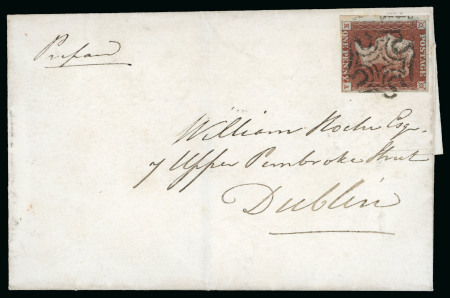 Prepaid
POSTAGE
ONE PENNY
William Roche Esqr.
7 Upper Pembroke Street
Dublin